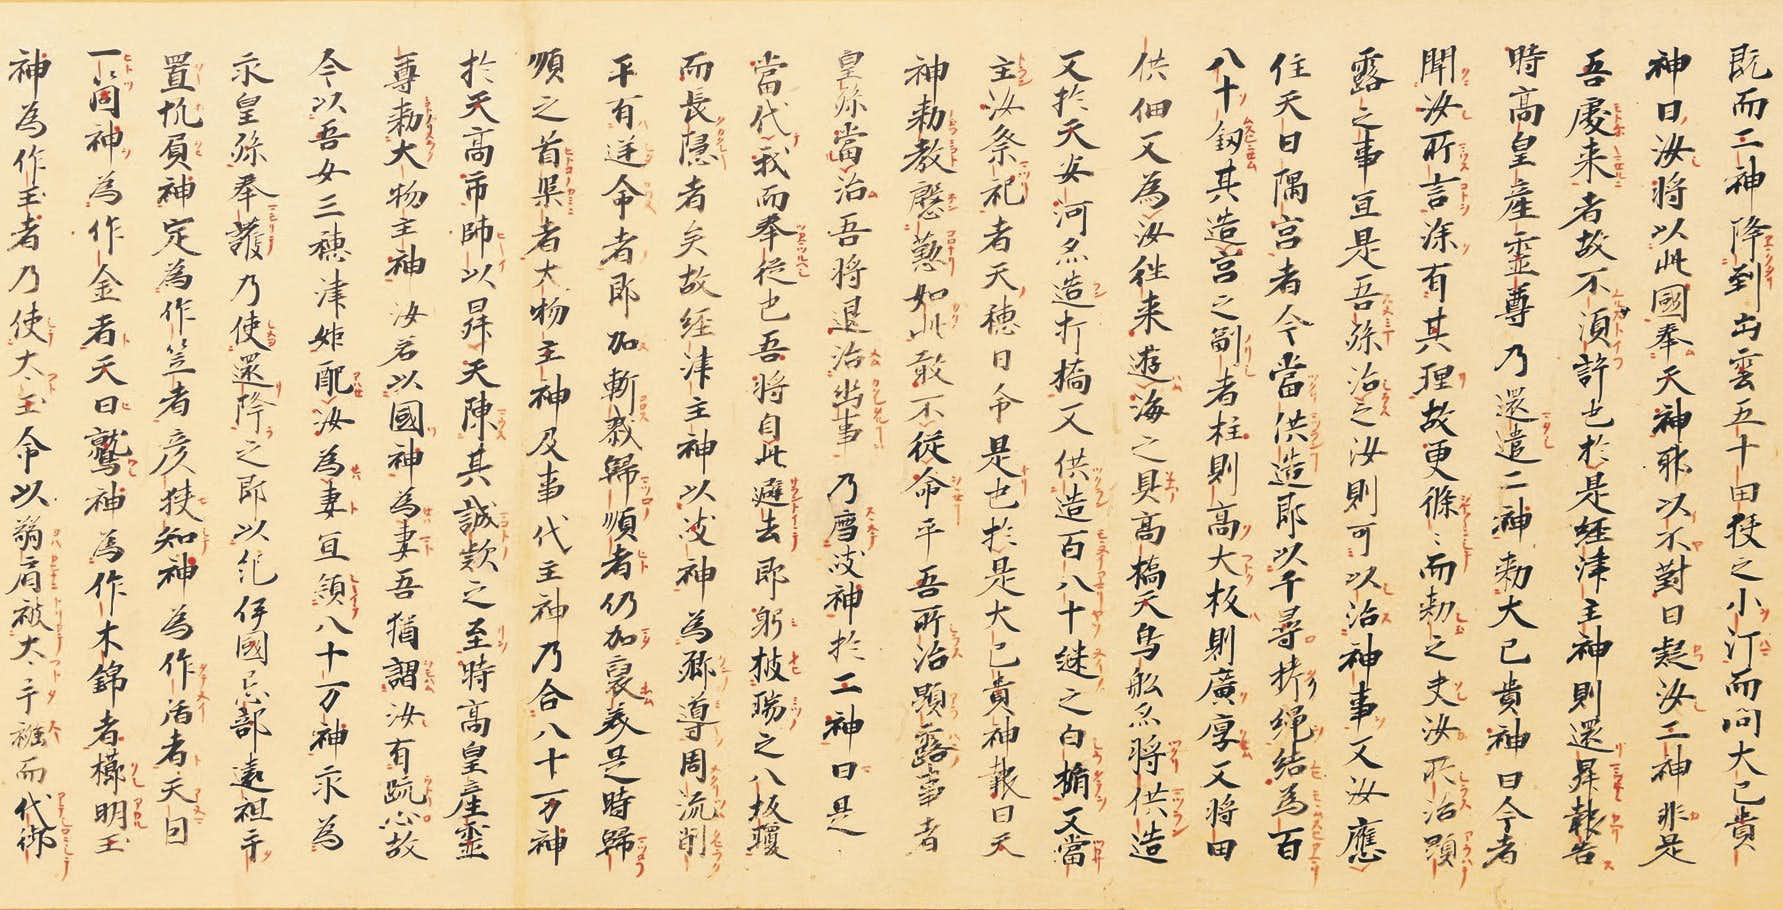 既而二神降到出雲五十田狹之小汀而問大己貴
神曰汝將以此國奉天神耶以不對曰疑汝二神非是
吾處来者故不須許也於是經津主神則還昇報告
時高皇產靈尊乃還遣二神勅大己貴神曰今者
聞汝所言深有其理故更條〻而勅之夫汝所治顕
露之事宜是吾孫治之汝則可以治神事又汝應
住天日隅宮者今當供造即以千尋栲繩結為百
八十釼其造宮之制者柱則高大板則廣厚又將田
供佃又為汝往来遊海之具高橋天鳥舩亦將供造
又於天安河亦造打橋又供造百八十縫之白楯又當
主汝祭祀者天穗日命是也於是大己貴神報曰天
神勅教慇懃如此敢不從命乎吾所治顕露事者
皇孫當治吾將退治幽事乃薦岐神於二神曰是
當代我而奉從也吾將自此避去即躬披瑞之八坂瓊
而長隱者矣故經津主神以岐神為鄉導周流削
平有逆命者即加斬戮歸順者仍加褒美是時歸
順之首渠者大物主神及事代主神乃合八十万神
於天高市帥以昇天陳其誠款之至時高皇產靈
尊勅大物主神汝若以國神為妻吾猶謂汝有疏心故
今以吾女三穗津姫配汝為妻宜領八十万神永為
皇孫奉護乃使還降之即以紀伊國忌部遠祖手
置帆負神定為作笠者彥狹知神為作盾者天目
一箇神為作金者天日鷲神為作木綿者櫛明玉
神為作玉者乃使太玉命以弱肩被太手繦而代御